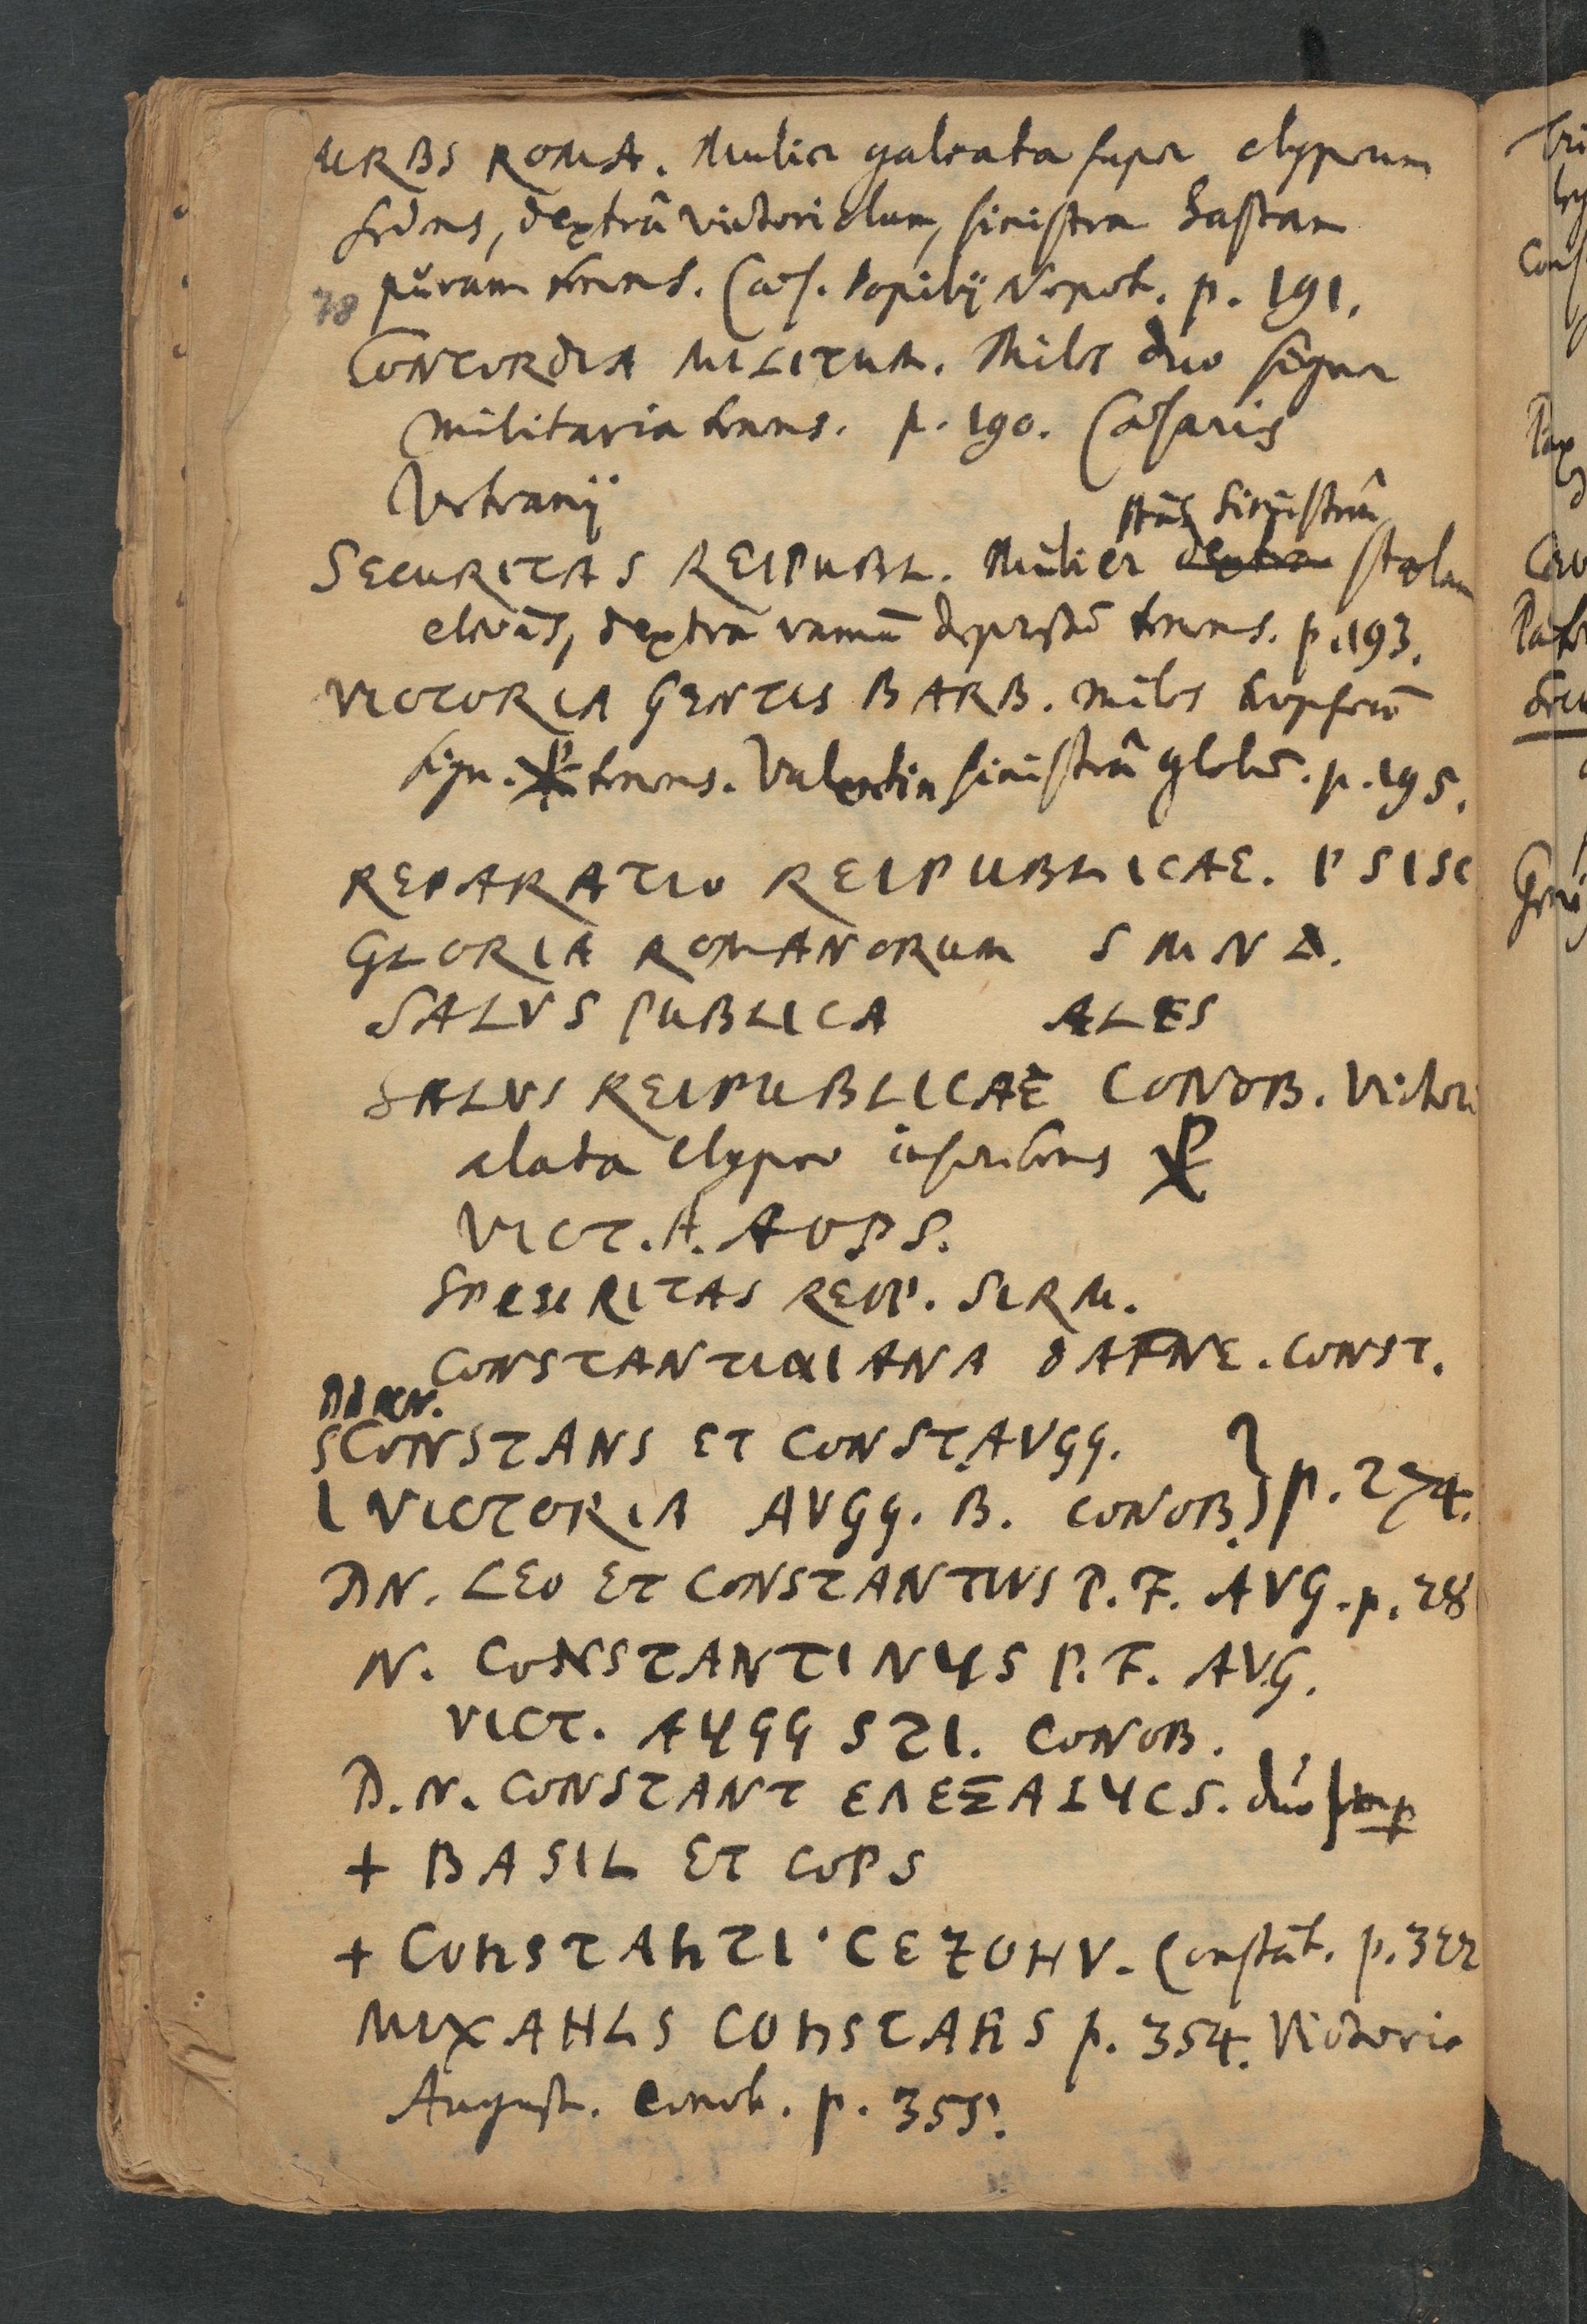 URBS ROMA. Mulier galeata super clypeum
sedens, dextrâ victoriolam, sinistra hastam
puram tenens. Cæs. Popilij Nepot. p. 191.
78
CONCORDIA MILITUM. Miles duo signa
militaria tenens. p. 190. Cæsaris
Vetranij
stās sinistrâ
SECURITAS REIPUBL. Mulier dextra stolam
elevās, dextra ramū depressū tenens. p. 193.
VICTORIA GENTIS BARB. miles trophæū
sign. ☧ tenens. Valentin sinistrâ globū. p. 195.
REPARATIO REIPUBLICAE. P SISC
GLORIA ROMANORUM S M N Δ.
SALVS PUBLICA ALES
SALVS REIPUBLICAE CONOB. Victori
alata clypeo inscribens ☧
VICT. A. AUPS.
REIP. SIRM.
CONSTANTINIANA DAFNE. CONST.
CONSTANS ET CONST. AVGG.
VICTORIA AVGG. B. CONOB. } p. 274.
DN. LEO ET CONSTANTINS P. F. AVG. p. 28
N. CONSTANTINYS P. F. AVG.
VICT. AYGG STI. CONOB.
D. N. CONSTANT duo
+ BASIL ET COPS
+ CONSTAhTI' CEZOHV. Constāt. p. 322
MIXAHLS COhSTAhS p. 354. Victoria
August. Conob. p. 355.